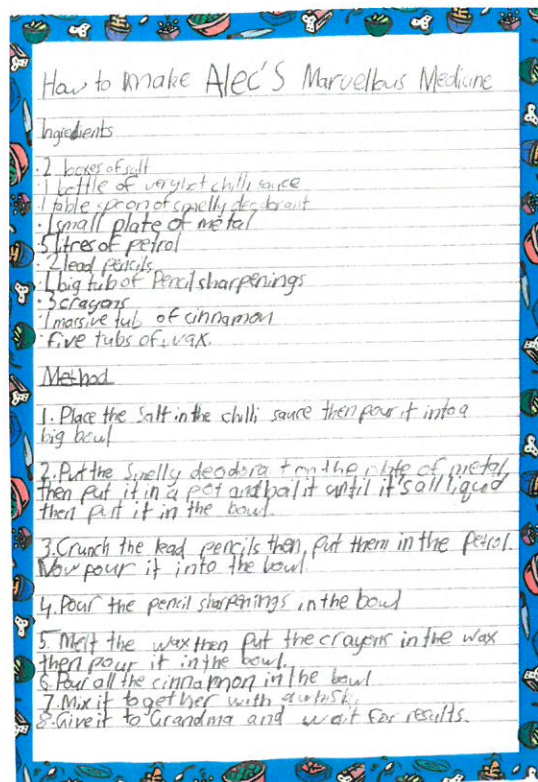 How to make Alec's Marvellous Medicine
Ingredients
· 2 boxes of salt
· 1 bottle of very hot chilli sauce
· 1 table spoon of smelly deodorant
· 1 small plate of metal
· 5 litres of petrol
· 2 lead pencils
· 1 big tub of Pencil sharpenings
· 3 crayons
· 1 massive tub of cinnamon
· five tubs of wax.
Method
1. Place the Salt in the chilli sauce then pour it into a
big bowl
2. Put the Smelly deodora t on the plate of metal,
then put it in a pot and boil it until it's all liquid
then put it in the bowl.
3. Crunch the lead pencils then put them in the petrol.
Now pour it into the bowl.
4. Pour the pencil sharpenings in the bowl
5. Melt the wax then put the crayons in the wax
then pour it in the bowl.
6. Pour all the cinnamon in the bowl
7. Mix it together with a whisk.
8. Give it to Grandma and wait for results.